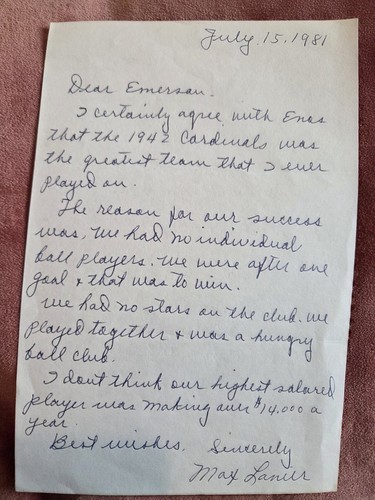 July. 15. 1981
Dear Emerson.
I certainly agree with Enos
that the 1942 Cardinals was
the greatest team that I ever
played on.
The reason for our success
was, we had no individual
ball players. We were after one
goal & that was to win.
We had no stars on the club. We
played together & was a hungry
ball club.
I dont think our highest salaried
player was making over $14,000 a
year.
Best wishes. Sincerely
Max Lanier